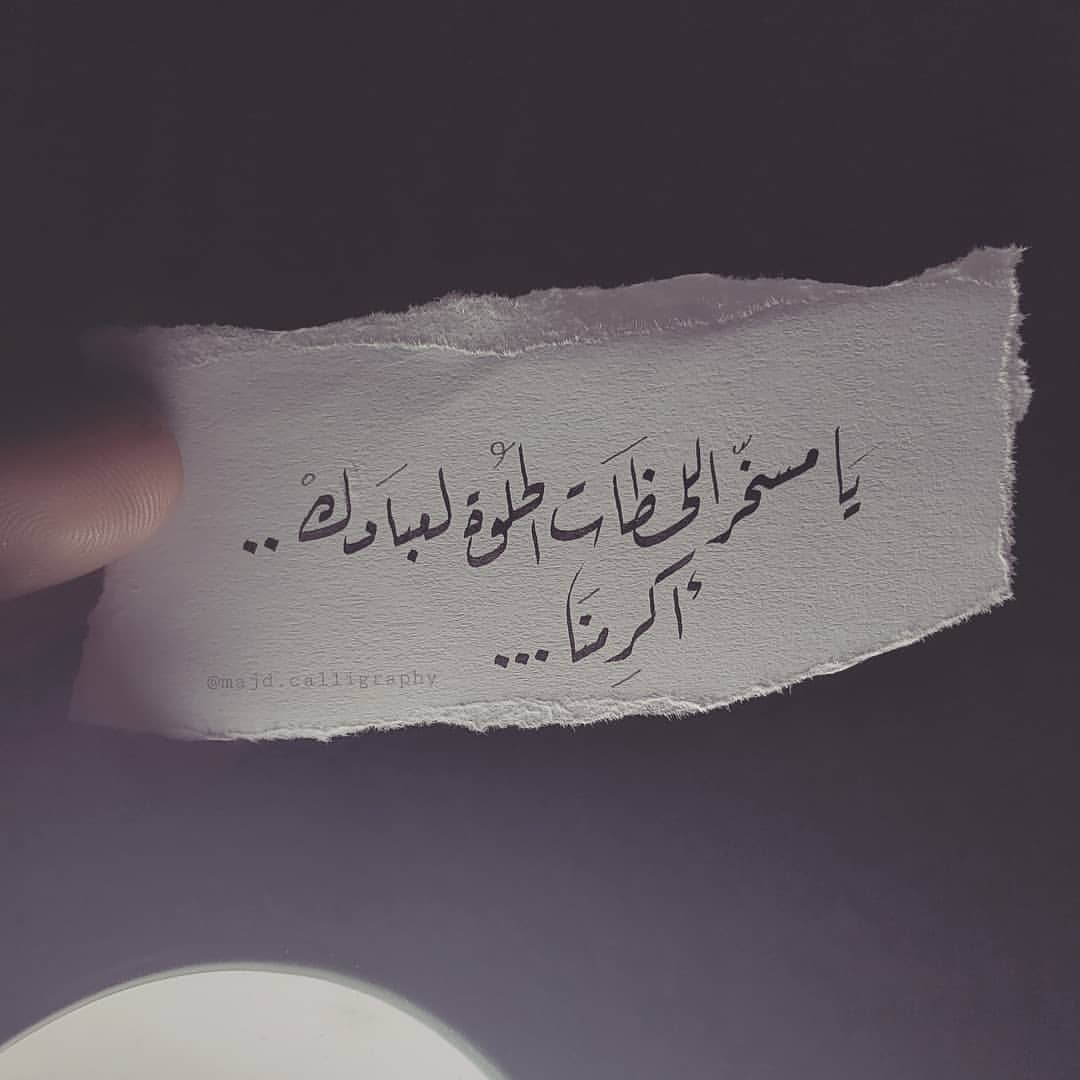 يَا مسخّر اللحظَات الحلُوة لعبَادكْ ..
أكرِمنَا ...
@majd.calligraphy